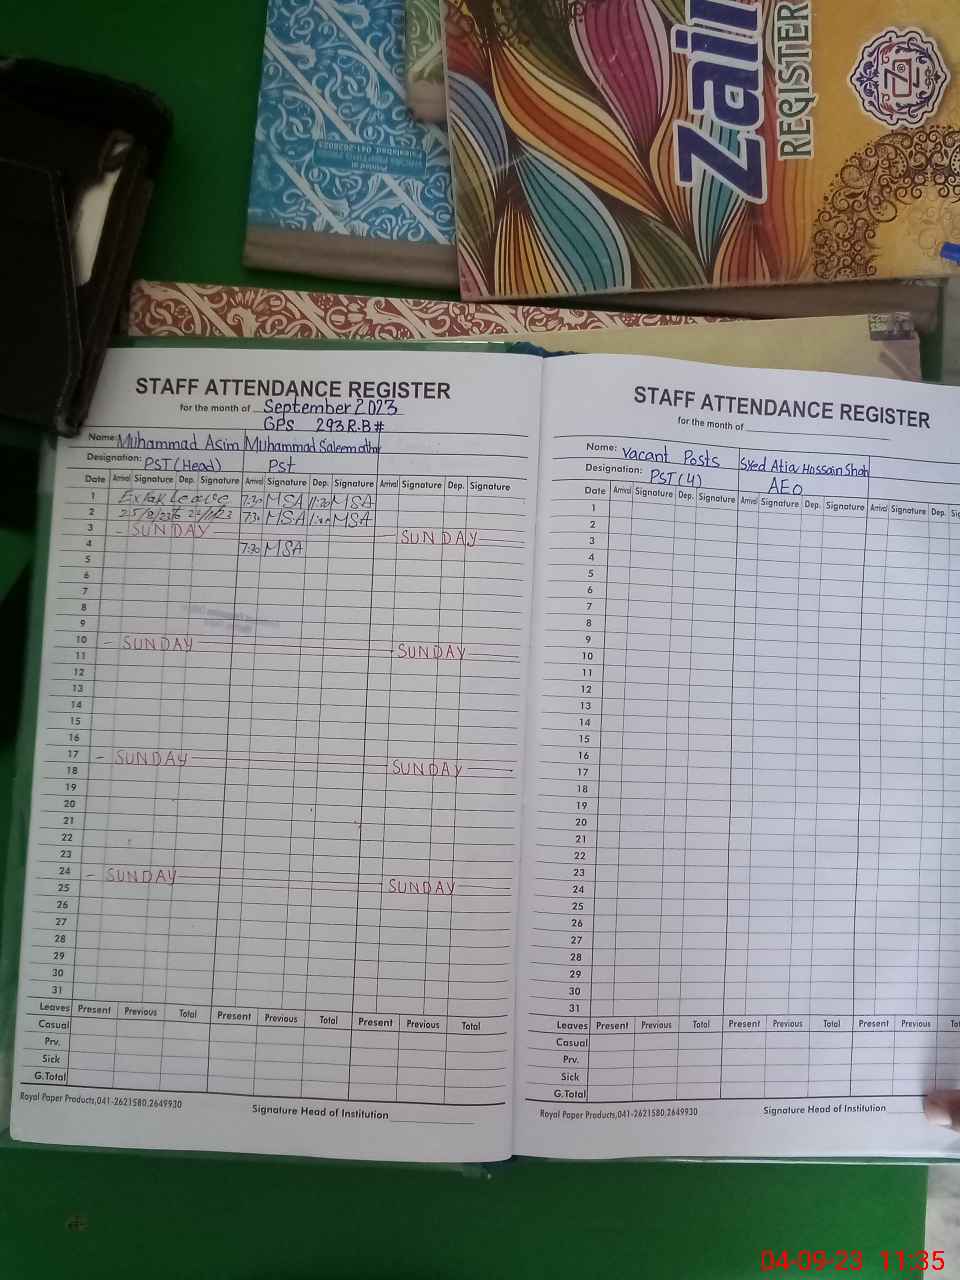 Zain
REGISTER
Faisalabad. 041-2626023
STAFF ATTENDANCE REGISTER
for the month of September 2023
GPS 293 R.B#
Name: Muhammad Asim Muhammad Saleem
Designation: PST (Head) Pst
Date Arrival Signature Dep. Signature Arrival Signature Dep. Signature Arrival Signature Dep. Signature
1 Leave 7:30 MSA 11:30 MSA
2 7:30 MSA MSA
3 - SUNDAY SUNDAY
4 7:30 MSA
5
6
7
8
9
10 - SUNDAY
11 SUNDAY
12
13
14
15
16
17 - SUNDAY
18 SUNDAY
19
20
21
22
23
24 - SUNDAY
25 SUNDAY
26
27
28
29
30
31
Leaves Present Previous Total Present Previous Total Present Previous Total
Casual
Prv.
Sick
G.Total
Royal Paper Products,041-2621580,2649930
Signature Head of Institution
STAFF ATTENDANCE REGISTER
for the month of
Name: Vacant Posts Syed Atia Hossain Shah
Designation: PST (4) AEO
Date Arrival Signature Dep. Signature Arrival Signature Dep. Signature Arrival Signature Dep.
1
2
3
4
5
6
7
8
9
10
11
12
13
14
15
16
17
18
19
20
21
22
23
24
25
26
27
28
29
30
31
Leaves Present Previous Total Present Previous Total Present Previous
Casual
Prv.
Sick
G.Total
Royal Paper Products,041-2621580,2649930
Signature Head of Institution
04-09-23 11:35